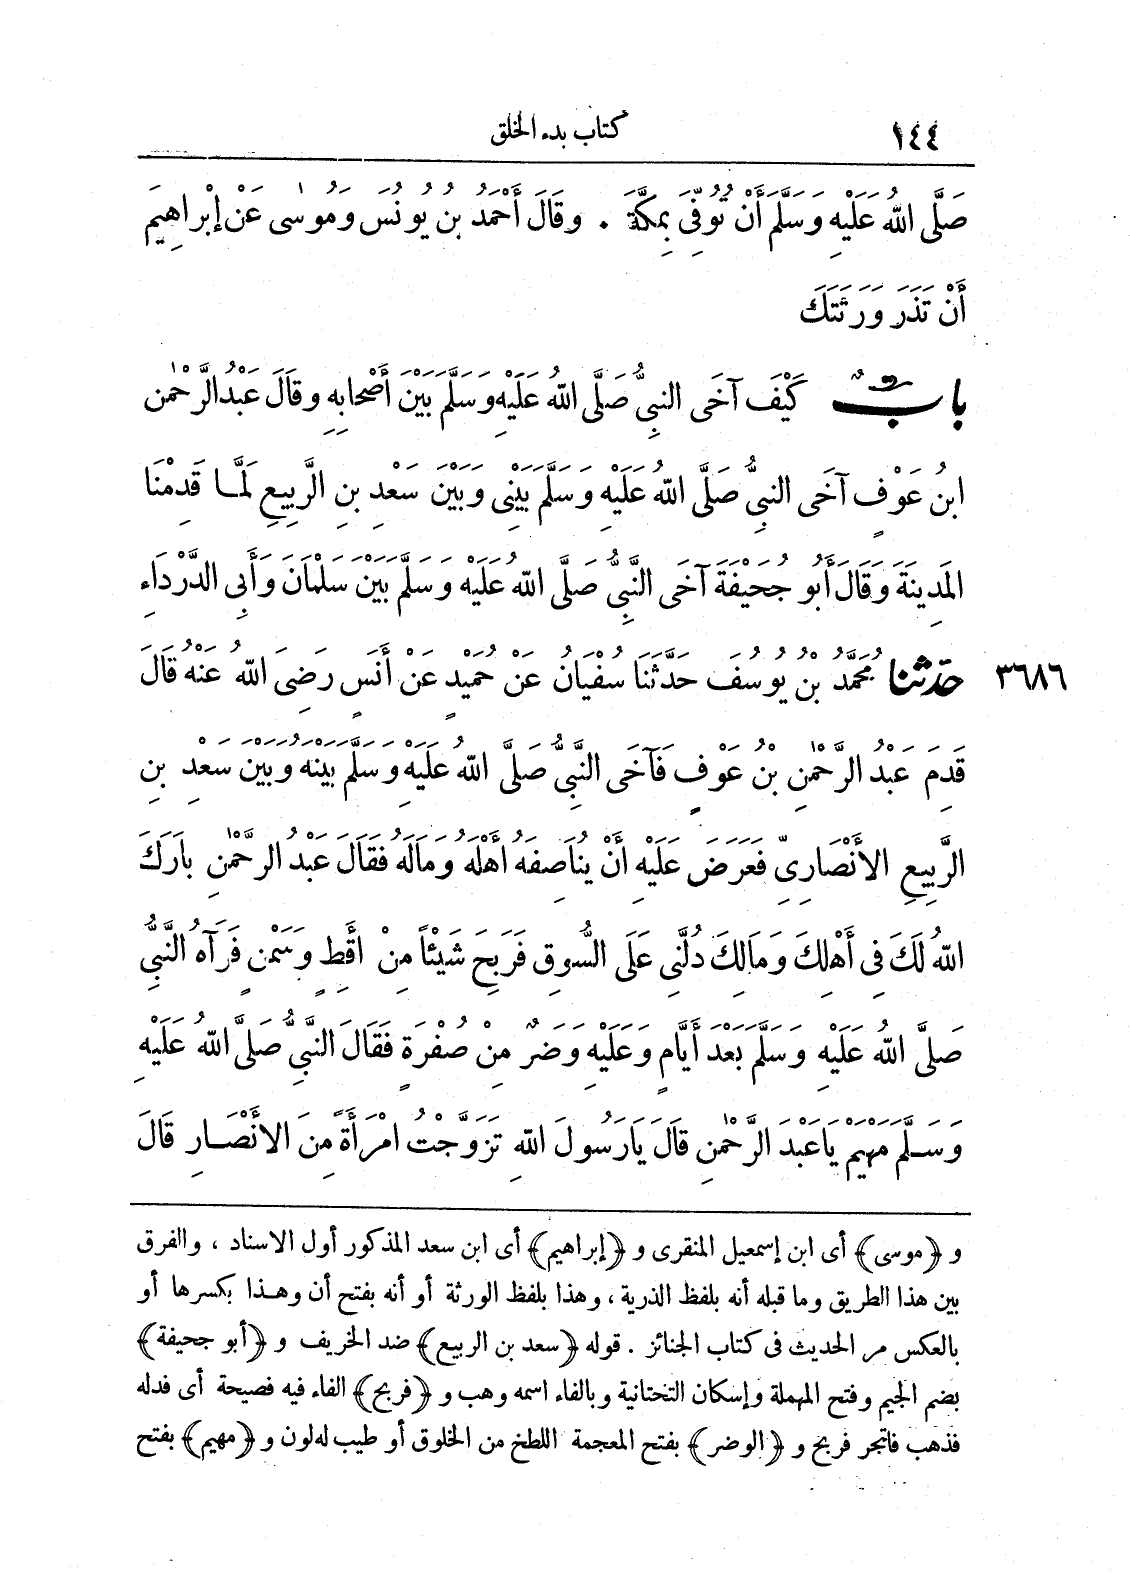 ١٤٤ كتاب بدء الخلق
صَلَّى اللهُ عَلَيْهِ وَسَلَّمَ أَنْ تُوُفِّىَ بِمَكَّةَ . وقَالَ أَحْمَدُ بن يُونُسَ وموسَى عَنْ إبْراهِيمَ
أَنْ تَذَرَ وَرَثَتَكَ
بابٌ كَيْفَ آخَى النبىُّ صَلَّى اللهُ عَلَيْهِ وسَلَّمَ بَيْنَ أَصْحابِهِ وقَالَ عَبْدُ الرَّحْمٰنِ
ابنُ عَوْفٍ آخَى النبىُّ صَلَّى اللهُ عَلَيْهِ وَسَلَّمَ بَيْنِى وبَيْنَ سَعْدِ بنِ الرَّبِيعِ لَمَّا قَدِمْنَا
المَدِينَةَ وَقَالَ أَبُو جُحَيْفَةَ آخَى النَّبىُّ صَلَّى اللهُ عَلَيْهِ وَسَلَّمَ بَيْنَ سَلْمَانَ وَأَبِى الدَّرْدَاءِ
٣٦٨٦ حدّثنا مُحَمَّدُ بْنُ يُوسُفَ حَدَّثَنَا سُفْيَانُ عَنْ حُمَيْدٍ عَنْ أَنَسٍ رَضِىَ اللهُ عَنْهُ قَالَ
قَدِمَ عَبْدُ الرَّحْمٰنِ بْنُ عَوْفٍ فَآخَى النَّبىُّ صَلَّى اللهُ عَلَيْهِ وَسَلَّمَ بَيْنَهُ وبَيْنَ سَعْدِ بنِ
الرَّبِيعِ الأَنْصَارِىِّ فَعَرَضَ عَلَيْهِ أَنْ يُنَاصِفَهُ أَهْلَهُ ومَالَهُ فَقَالَ عَبْدُ الرَّحْمٰنِ بَارَكَ
اللهُ لَكَ فى أَهْلِكَ وَمَالِكَ دُلَّنِى عَلَى السُّوقِ فَرَبِحَ شَيْئاً مِنْ أَقِطٍ وسَمْنٍ فَرَآهُ النَّبىُّ
صَلَّى اللهُ عَلَيْهِ وَسَلَّمَ بَعْدَ أَيَّامٍ وَعَلَيْهِ وَضَرٌ مِنْ صُفْرَةٍ فَقَالَ النَّبىُّ صَلَّى اللهُ عَلَيْهِ
وَسَلَّمَ مَهْيَمْ يَاعَبْدَ الرَّحْمٰنِ قَالَ يَارَسُولَ اللهِ تَزَوَّجْتُ امْرَأَةً مِنَ الأَنْصَارِ قَالَ
و ﴿موسى﴾ أى ابن إسمعيل المنقرى و ﴿إبراهيم﴾ أى ابن سعد المذكور أول الاسناد ، والفرق
بين هذا الطريق وما قبله أنه بلفظ الذرية ، وهذا بلفظ الورثة أو أنه بفتح أن وهذا بكسرها أو
بالعكس مر الحديث فى كتاب الجنائز . قوله ﴿سعد بن الربيع﴾ ضد الخريف و ﴿أبو جحيفة﴾
بضم الجيم وفتح المهملة وإسكان التحتانية وبالفاء اسمه وهب و ﴿فربح﴾ الفاء فيه فصيحة أى فدله
فذهب فاتجر فربح و ﴿الوضر﴾ بفتح المعجمة اللطخ من الخلوق أو طيب له لون و ﴿مهيم﴾ بفتح